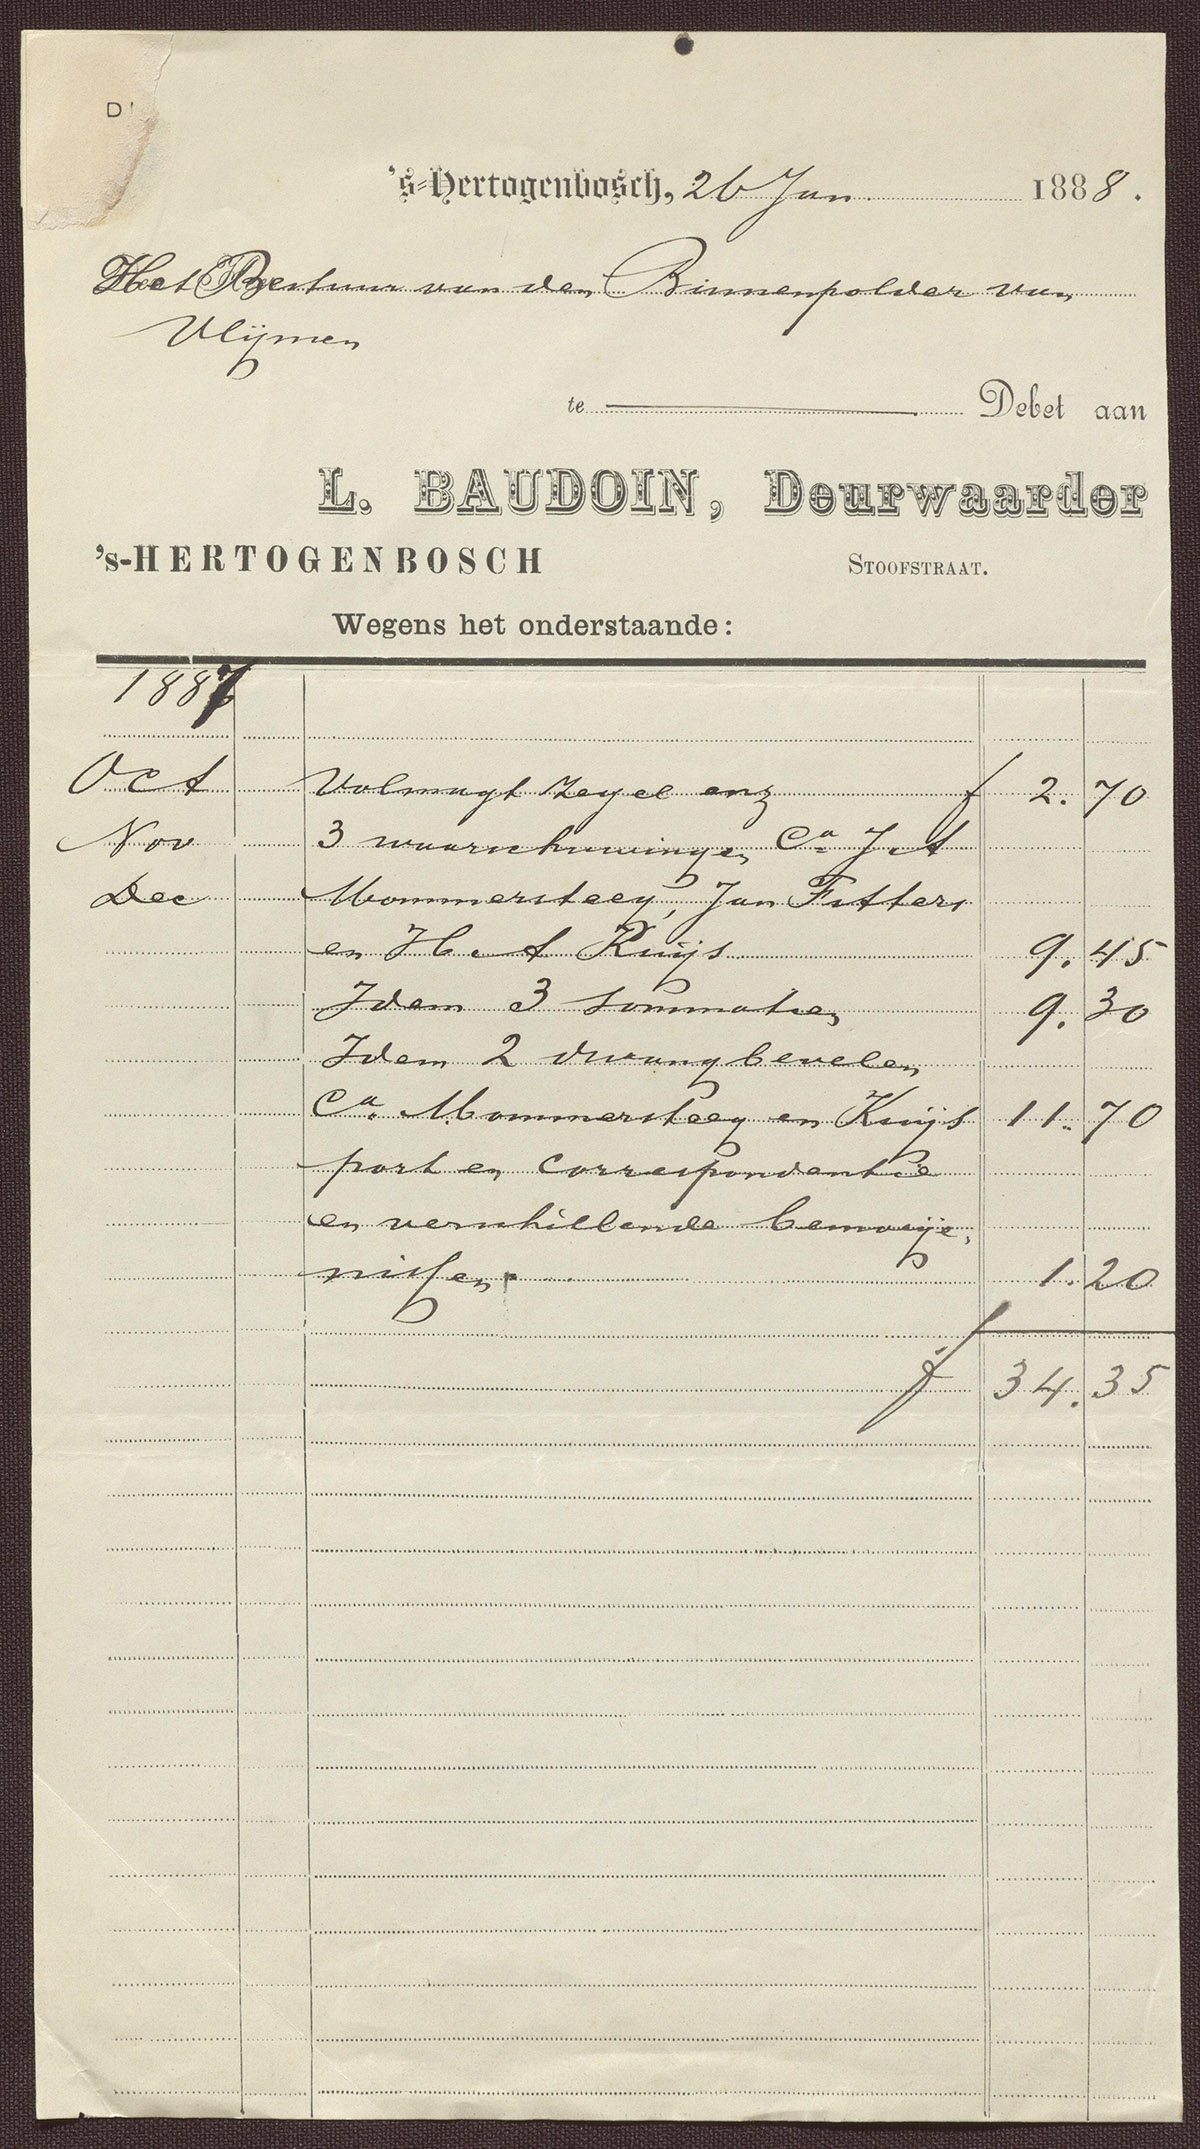 D
's-Hertogenbosch, 26 Jan. 1888.
Het Bestuur van den Binnenpolder van
Vlijmen
te Debet aan
L. BAUDOIN, Deurwaarder
's-HERTOGENBOSCH STOOFSTRAAT.
Wegens het onderstaande:
1887
Oct Volmagt zegel enz f 2.70
Nov 3 waarschuwingen Ca J. A
Dec Mommersteeg, Jan Fitters
en H. A Kuijs 9.45
Idem 3 sommatien 9.30
Idem 2 dwangbevelen
Ca. Mommersteeg en Kuijs 11.70
port en correspondentie
en verschillende bemoeije,
nissen 1.20
f 34.35